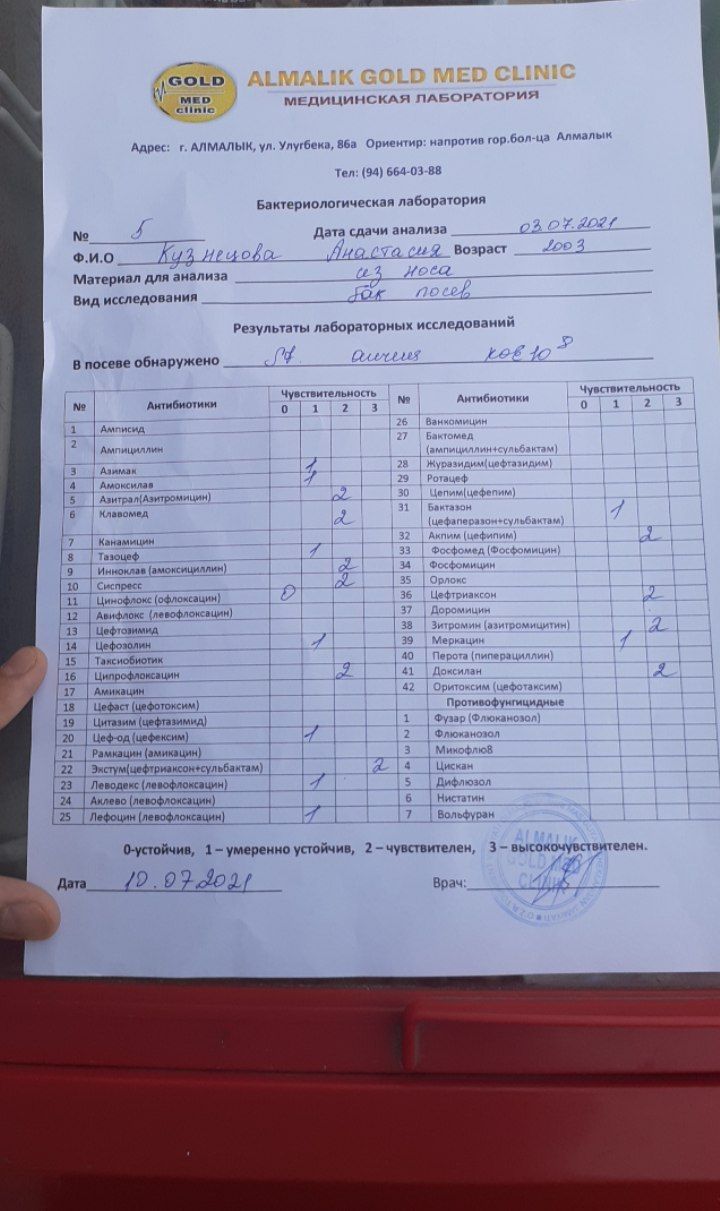 GOLD
MED
clinic
ALMALIK GOLD MED CLINIC
МЕДИЦИНСКАЯ ЛАБОРАТОРИЯ
Адрес: г. АЛМАЛЫК, ул. Улугбека, 86а Ориентир: напротив гор.бол-ца Алмалык
Тел: (94) 664-03-88
Бактериологическая лаборатория
№ 5 Дата сдачи анализа 03.07.2021
Ф.И.О Кузнецова Анастасия Возраст 2003
Материал для анализа из носа
Вид исследования бак посев
Результаты лабораторных исследований
В посеве обнаружено St. 10 8
№ Антибиотики Чувствительность 0 1 2 3
1 Амписид
2 Ампициллин
3 Азимак 1
4 Амоксилав 1
5 Азитрал(Азитромицин) 2
6 Клавомед 2
7 Канамицин
8 Тазоцеф 1
9 Инноклав (амоксициллин) 2
10 Сиспресс 2
11 Цинофлокс (офлоксацин) 0
12 Авифлокс (левофлоксацин)
13 Цефтозимид
14 Цефозолин 1
15 Таксиобиотик
16 Ципрофлоксацин 2
17 Амикацин
18 Цефаст (цефотоксим)
19 Цитазим (цефтазимид)
20 Цеф-од (цефексим) 1
21 Рамкацин (амикацин)
22 Экстум(цефтриаксон+сульбактам) 2
23 Леводекс (левофлоксацин) 1
24 Аклево (левофлоксацин)
25 Лефоцин (левофлоксацин) 1
№ Антибиотики Чувствительность 0 1 2 3
26 Ванкомицин
27 Бактомед
(ампициллин+сульбактам)
28 Журазидим(цефтазидим)
29 Ротацеф
30 Цепим(цефепим)
31 Бактазон 1
(цефаперазон+сульбактам)
32 Акпим (цефипим) 2
33 Фосфомед (Фосфомицин)
34 Фосфомицин
35 Орлокс
36 Цефтриаксон 2
37 Доромицин
38 Зитромин (азитромицитин) 2
39 Меркацин 1
40 Перота (пиперациллин)
41 Доксилан 2
42 Оритоксим (цефотаксим)
Противофунгицидные
1 Фузар (Флюканозол)
2 Флюканозол
3 Микофлю8
4 Цискан
5 Дифлюзол
6 Нистатин
7 Вольфуран
0-устойчив, 1 – умеренно устойчив, 2 – чувствителен, 3 – высокочувствителен.
Дата 10.07.2021 Врач:
ALMALIK
GOLD MED
CLINIC